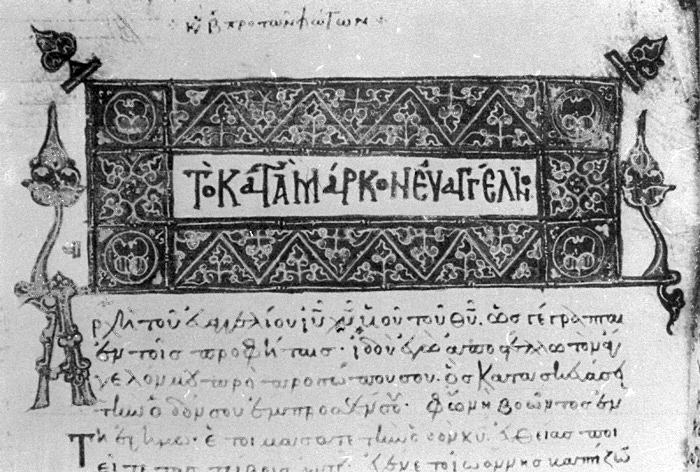 κυ β πρὸ τῶν φώτων
τὸ κατὰ μάρκον ἐυαγγέλιο
ἀρχὴ τοῦ εὐαγγελίου ἰυ χυ υἱοῦ τοῦ θυ. ὡς γέγραπται
ἐν τοῖς προφήταις· ἰδοὺ ἐγὼ ἀποστέλλω τὸν ἄγ
γελόν μου πρὸ προσώπου σου. ὃς κατασκευάσει
τὴν ὁδόν σου ἔμπροσθέν σου· φωνὴ βοῶντος ἐν
τῇ ἐρήμω· ἑτοιμάσατε τὴν ὁδὸν κυ. εὐθείας ποι
εῖτε τὰς τρίβους αὐτοῦ· ἐγένετο ἰωάννης βαπτίζω